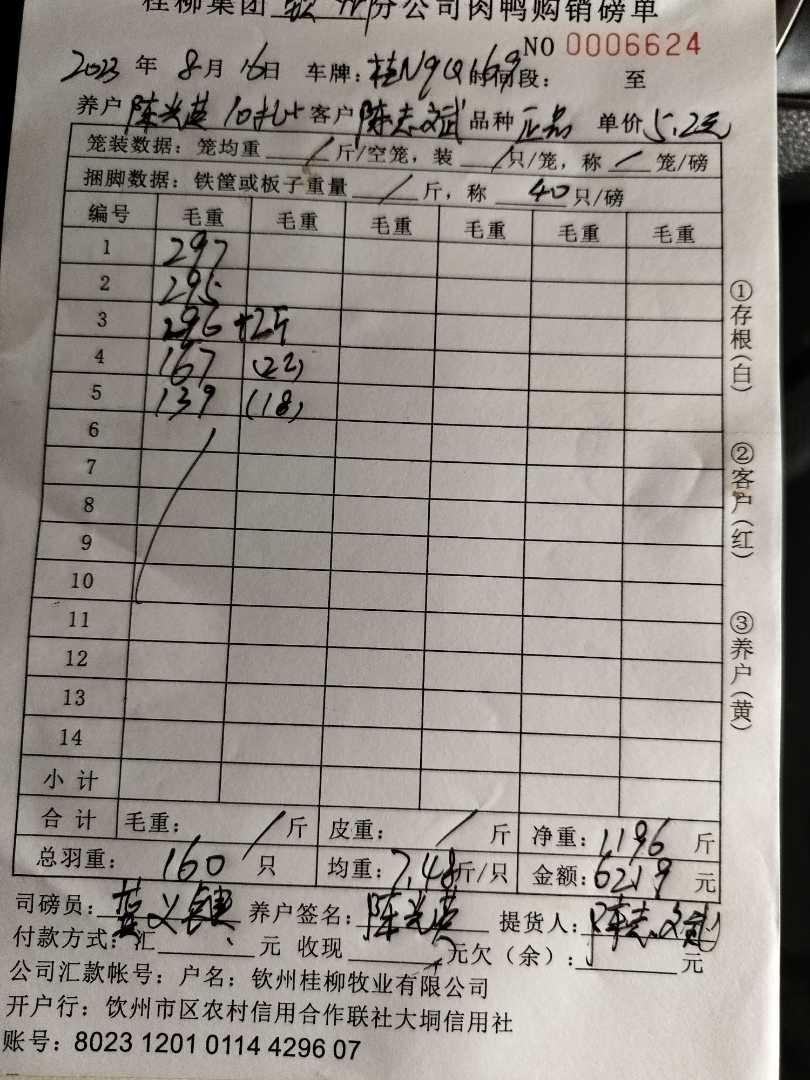 桂柳集团 钦州 分公司肉鸭购销磅单
NO 0006624
2023 年 8 月 16 日 车牌：桂N9Q169 时间段： 至
养户 陈兴英 客户 陈志斌 品种 正品 单价 5.2元
笼装数据：笼均重 / 斤/空笼，装 / 只/笼，称 / 笼/磅
捆脚数据：铁筐或板子重量 / 斤，称 40 只/磅
编号 毛重 毛重 毛重 毛重 毛重 毛重
1 297
2 295
3 296 +2斤
4 167 (22)
5 139 (18)
6
7
8
9
10
11
12
13
14
小计
合计 毛重： / 斤 皮重： / 斤 净重：1196 斤
总羽重： 160 只 均重：7.48 斤/只 金额：6219 元
司磅员： 养户签名：陈兴英 提货人：陈志斌
付款方式：汇 元 收现 元欠（余）： 元
公司汇款帐号：户名：钦州桂柳牧业有限公司
开户行：饮州市区农村信用合作联社大垌信用社
账号：8023 1201 0114 4296 07
①存根(白)
②客户(红)
③养户(黄)